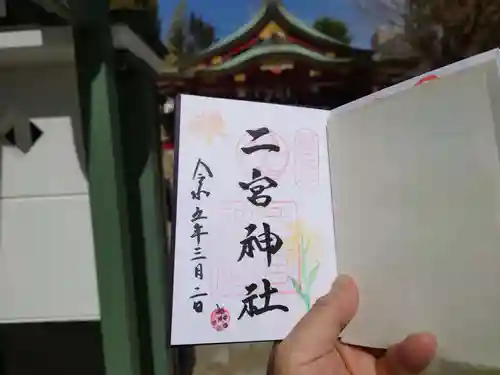 二宮神社
令和五年三月二日